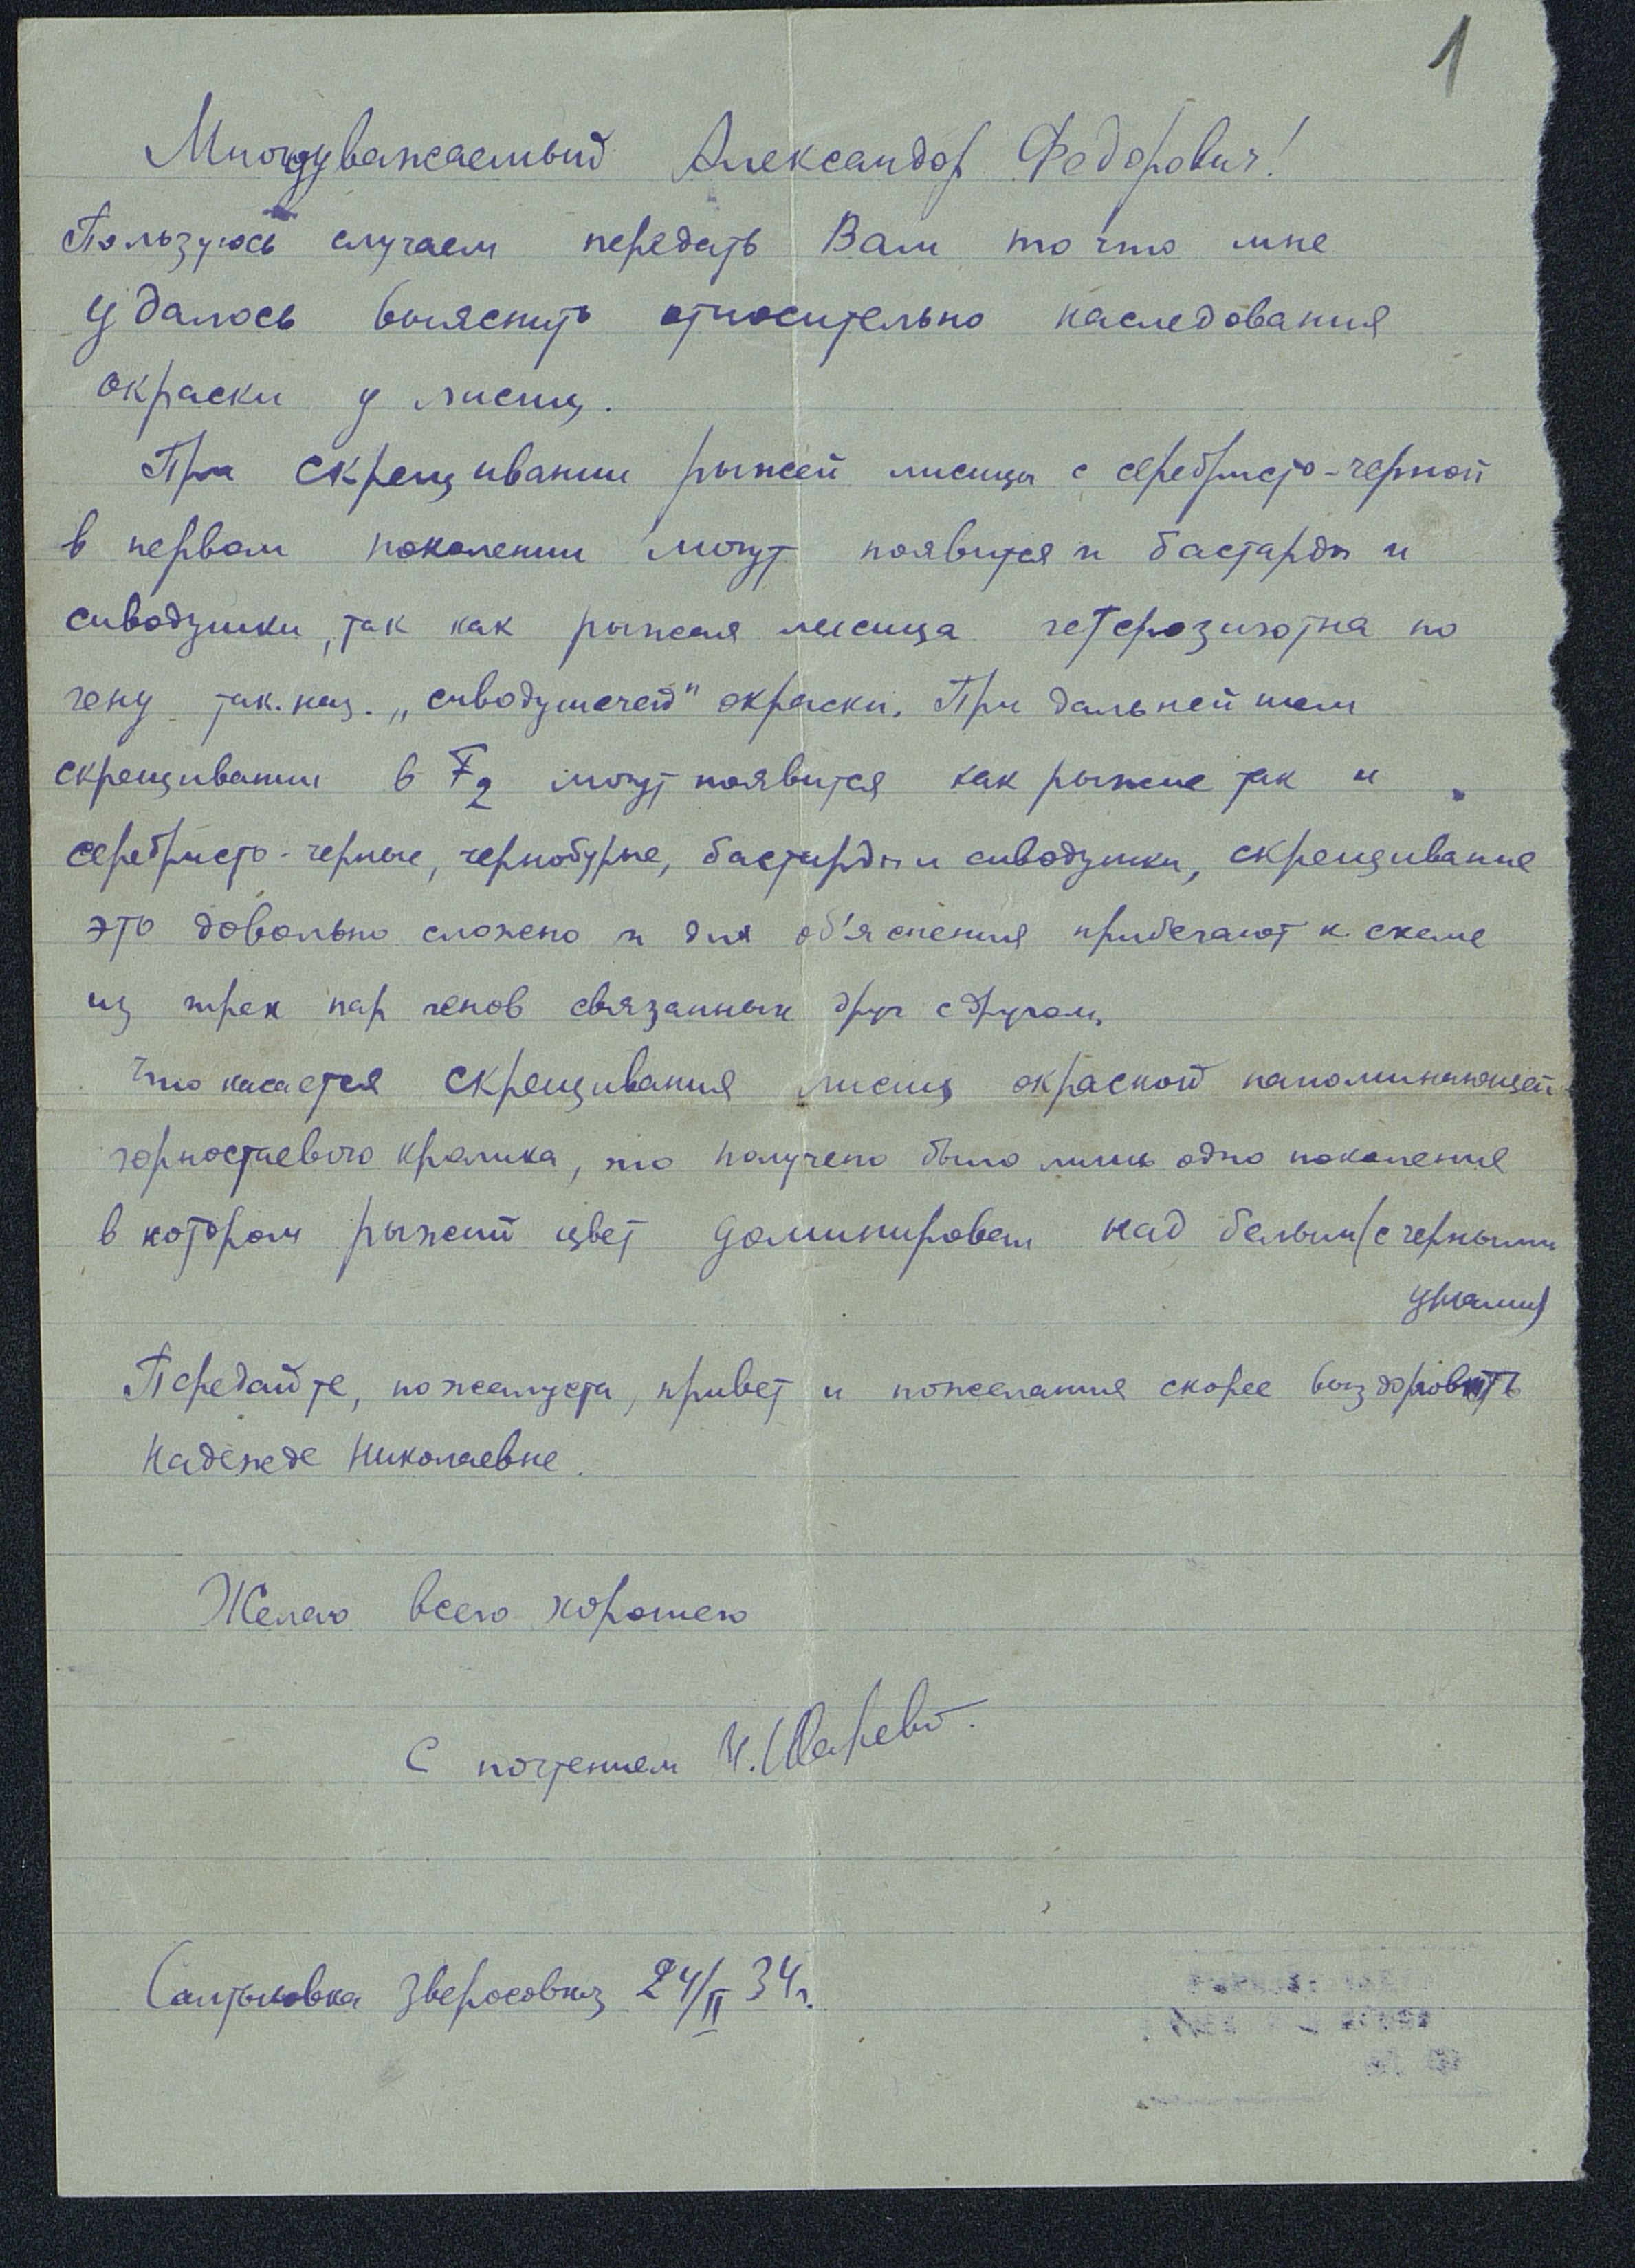 1
Многоуважаемый Александр Федорович!
Пользуюсь случаем передать Вам то что мне
удалось выяснить относительно наследования
окраски у лисиц.
При скрещивании рыжей лисицы с серебристо-черной
в первом поколении могут появится и бастарды и
сиводушки, так как рыжая лисица гетерозиготна по
гену так. наз. „сиводушечей" окраски. При дальнейшем
скрещивании в F2 могут появится как рыжие так и
серебристо-черные, чернобурые, бастарды и сиводушки, скрещивание
это довольно сложено и для об'яснения прибегают к схеме
из трех пар генов связанных друг с другом.
Что касается скрещивания лисиц окраской напоминающей
горностаевого кролика, то получено было лишь одно поколение
в котором рыжий цвет доминировал над белым (с черными
ушами)
Передайте, пожалуста, привет и пожелания скорее выздоровить
Надежде Николаевне.
Желаю всего хорошего
С почтением
Салтыковка Зверосовхоз 24/II 34г.